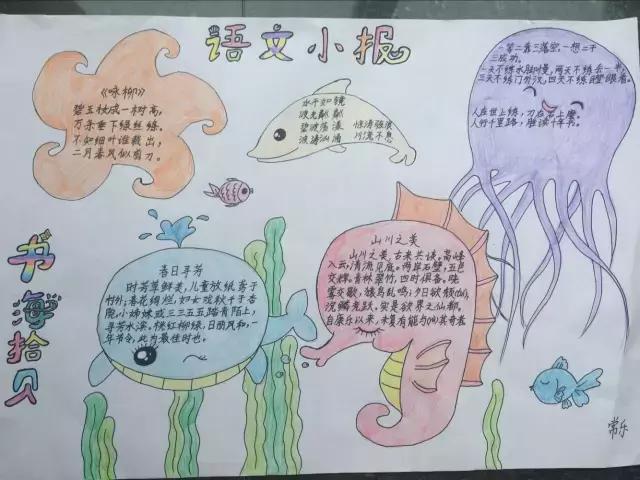 语文小报
《咏柳》
碧玉妆成一树高,
万条垂下绿丝绦。
不知细叶谁裁出,
二月春风似剪刀。
水平如镜
波光粼粼
碧波荡漾 惊涛骇浪
波涛汹涌 川流不息
一等二靠三落空,一想二干
三成功。
一天不练手脚慢,两天不练丢一半,
三天不练门外汉,四天不练瞪眼看。
人在世上练,刀在石上磨。
人行千里路,胜读十年书。
书海拾贝
春日寻芳
时芳草鲜美,儿童放纸鸢于
村外,春花绚烂,
小姊妹或三三五五踏青陌上,
寻芳水滨。桃红柳绿,日丽风和,一
年节令,此为最佳时也。
山川之美
山川之美,古来共谈。高峰
入云,清流见底。两岸石壁,五色
交辉。青林翠竹,四时俱备。晓
雾交歇,猿鸟乱鸣;夕日欲颓(tuí),
沉鳞竞跃,实是欲界之仙都。
自康乐以来,未复有能与(yù)其奇者
常乐